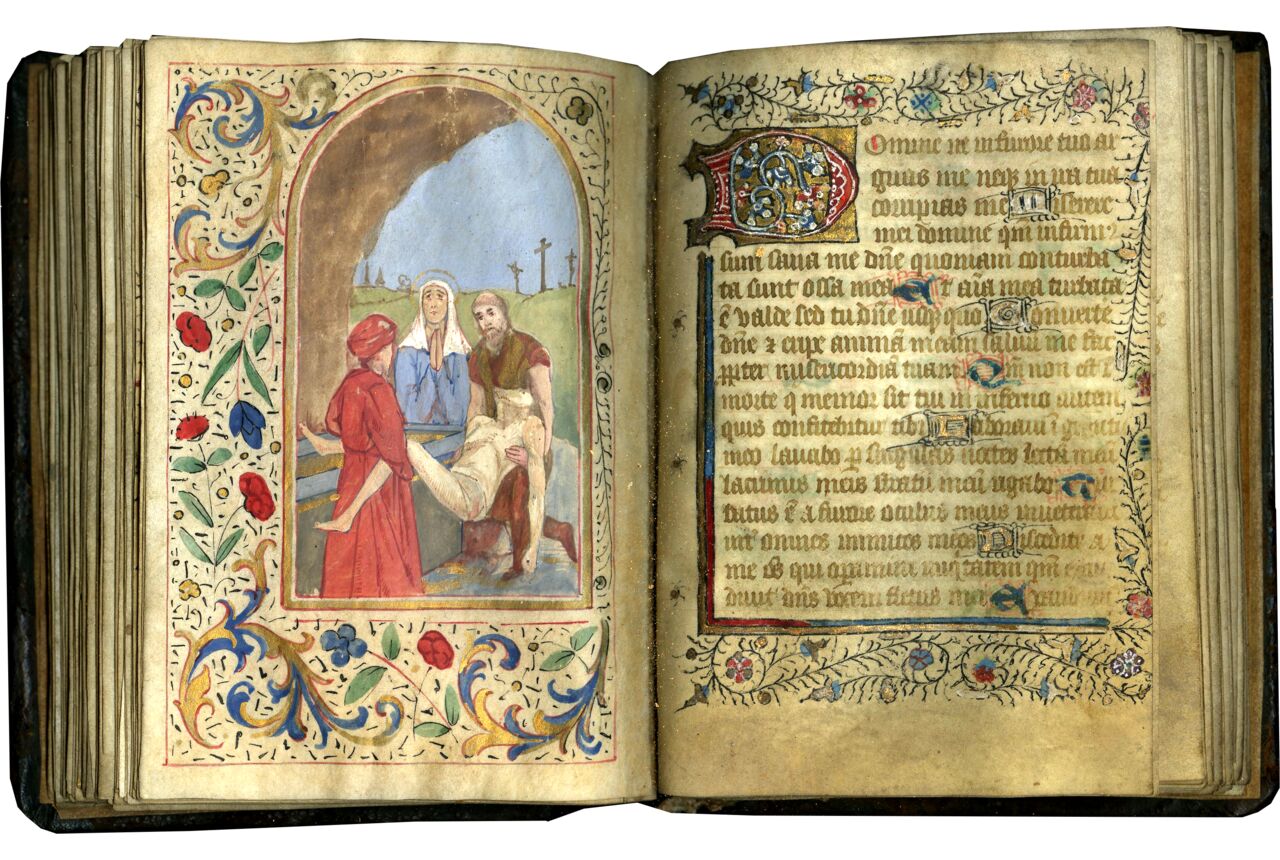 Domine ne in furore tuo ar
guas me neq in ira tua
corripias me Miserere
mei domine qm infirm
sum sana me dne quoniam conturba
ta sunt ossa mea Et aīa mea turbata
ē valde sed tu dne usq quo Convertere
dne ⁊ eripe animā meam salvū me fac
ppter misericordiā tuam Qm non est ī
morte q memor sit tui in inferno autem
quis confitebitur tibi Laboravi ī gemitu
meo lavabo p singulas noctes lectū meū
lacrimis meis stratū meū rigabo Tur
batus ē a furore oculus meus inveteravi
int omnes inimicos meos Discedite a
me os qui operamini iniqtatem qm
divit dns vocem fletus mei